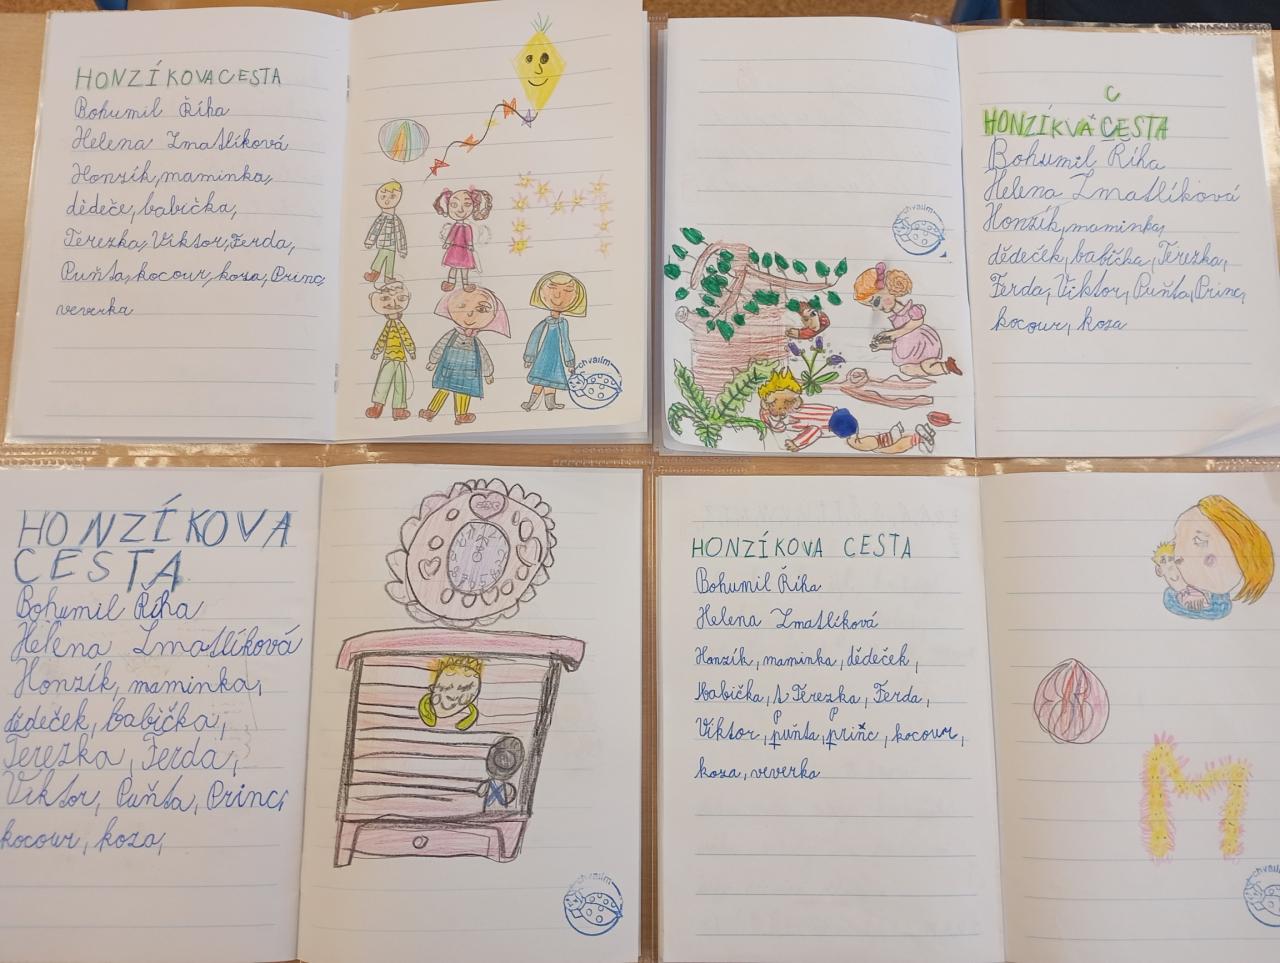 HONZÍKOVA CESTA
Bohumil Říha
Helena Zmatlíková
Honzík, maminka,
dědeče, babička,
Terezka, Viktor, Ferda,
Puňta, kocour, koza, Princ,
veverka
chválím
C
HONZÍKVA CESTA
Bohumil Říha
Helena Zmatlíková
Honzík, maminka,
dědeček, babička, Terezka,
Ferda, Viktor, Puňta, Princ,
kocour, koza
chválím
HONZÍKOVA
CESTA
Bohumil Říha
Helena Zmatlíková
Honzík, maminka,
dědeček, babička,
Terezka, Ferda,
Viktor, Puňta, Princ,
kocour, koza,
chválím
HONZÍKOVA CESTA
Bohumil Říha
Helena Zmatlíková
Honzík, maminka, dědeček,
babička, Terezka, Ferda,
P P
Viktor, puňta, princ, kocour,
koza, veverka
M
chválím